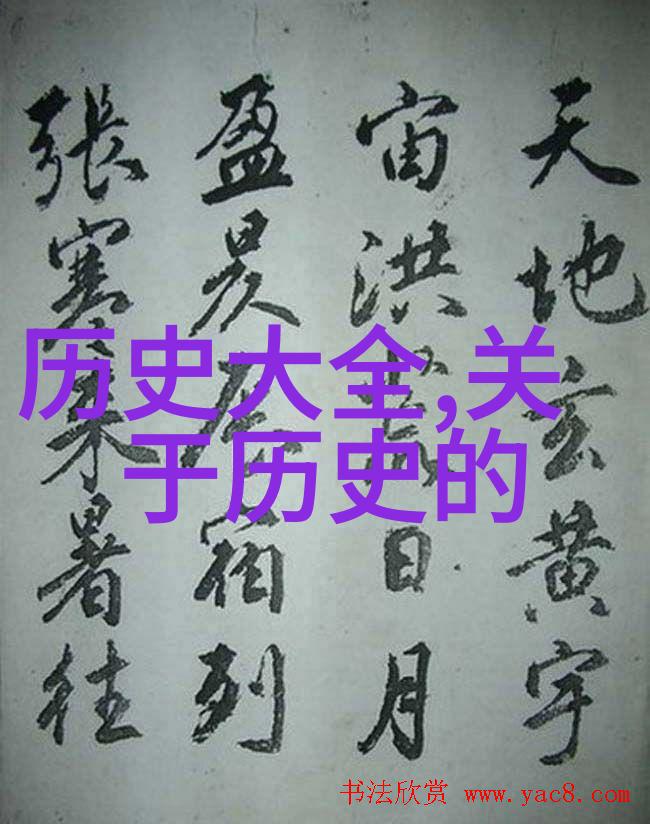 天地玄黄宇
宙洪荒日月
盈昃辰宿列
張寒来暑往
历史大全,关
于历史的
书法欣赏 www.yac8.com